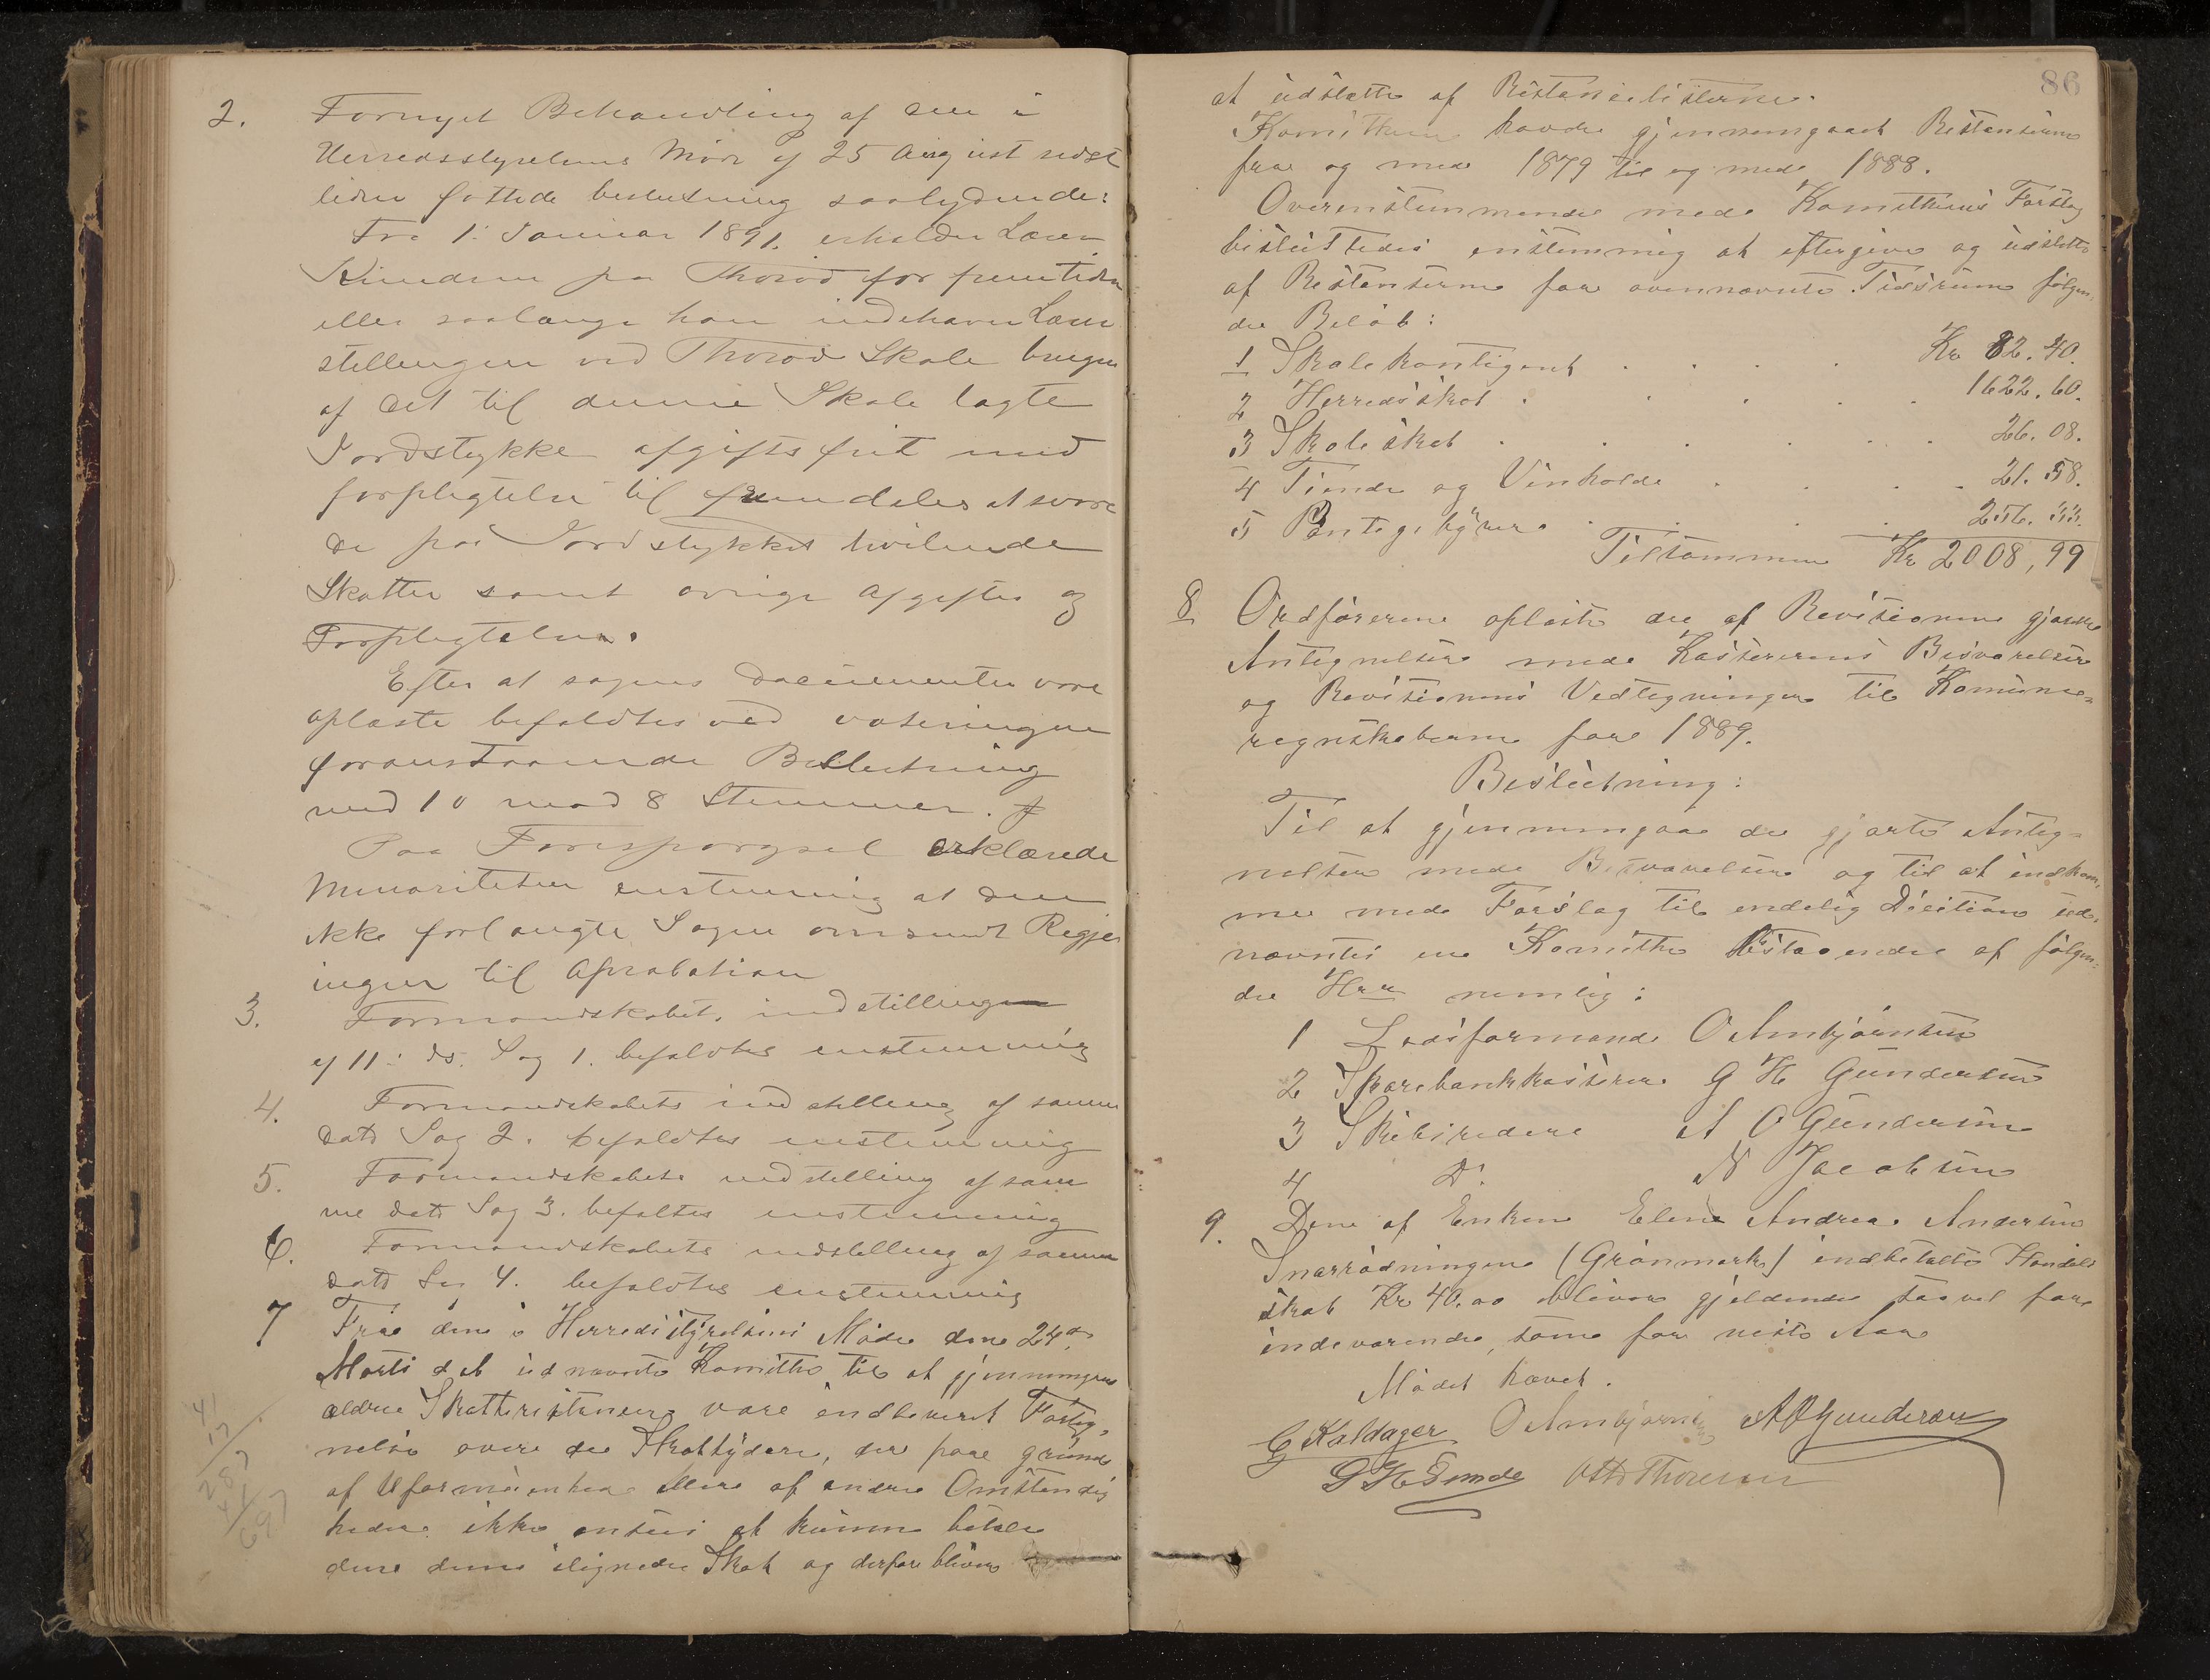 2. Fornyet Behandling af den i
Herredsstyrelsens Møde af 25 August sidst
leden fattede beslutning saalydende:
Fra 1: Januar 1891. erholder Lærer
Simensen paa Thorød for fremtiden
eller saalænge han indehaver Lærer
stillingen ved Thorød Skole brugen
af det til denne Skole lagte
Jordstykke afgiftsfrit med
forpligtelse til fremdeles at svare
de paa Jordstykket hvilende
Skatter samt øvrige Afgifter og
Forpligtelser.
Efter at sagens Documenter vare
oplæste befoldtes ved voteringen
foranstaaende Beslutning
med 10 mod 8 Stemmer.
Paa Forespørgsel erklærede
Minoriteten enstemmig at den
ikke forlangte Sagen omsendt Regjer
ingen til Aprobation
3. Formandskabets indstilling
af 11: ds. Sag 1. befoldtes enstemmig
4. Formandskabets indstilling af samme
dato Sag 2. befoldtes enstemmig
5. Formandskabets indstilling af sam
me dato Sag 3. befoltes enstemmig
6. Formandskabets indstilling af samme
dato Sag 4. befoldtes enstemmig
7 Fra den i Herredstyrelsens Møde den 24de
Marts d.A. udnævnte Komithe til at gjennemgaa
ældre Skatterestanser vare indleveret Forteg-
nelse over de Skattydere, der paa grund
af Uformuenhed eller af andre Omstendig
heder ikke ansees at kunne betale
den dem ilignede Skat og derfor bliver
41
17
287
41
697
86
at udslette af Restanselisterne.
Komitheen havde gjennemgaaet Restanserne
fra og med 1879 til og med 1888.
Overenstemmende med Komitheens Forslag
besluttedes enstemmig at eftergive og udslette
af Restanserne for ovennævnte Tidsrum følgen-
de Beløb:
1 Skolekontigent . . . . Kr 82.40.
2 Herredsskat . . . . . 1622.60.
3 Skoleskat . . . . . . 26.08.
4 Tiende og Vinholde . . . . 21.58.
5 Pantegebyrer . . . . 256.33.
Tilsammen Kr 2008,99
8 Ordføreren oplæste de af Revisionen gjorte
Antegnelser med Kassererens Besvarelser
og Revisionens Vedtegninger til Komune-
regnskaberne for 1889.
Beslutning:
Til at gjennemgaa de gjorte Anteg-
nelser med Besvarelser og til at indkom-
me med Forslag til endelig Decition ud-
nævntes en Komithe bestaaende af følgen-
de Hrr nemlig:
1 Lodsformand O Ambjørnsen
2 Sparebankkasserer G H Gundersen
3 Skibsreder A O Gundersen
4 Do N Jacobsen
9. Den af Enken Elene Andrea Andersen
Snarrødningen (Grønmark) indbetalte Handels
skat Kr 40.00 bliver gjeldende saavel for
indeværende, som for neste Aar
Mødet hævet.
G Kaldager O Ambjørnsen A O Gundersen
G H Gunde Otto Thoresen